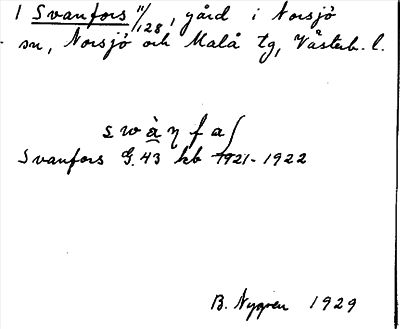 1 Svanfors 11/128, gård i Norsjö
sn, Norsjö och Malå tg, Västerb. l.
swànfaʃ
Svanfors G. 43 kb 1921-1922
B. Nygren 1929